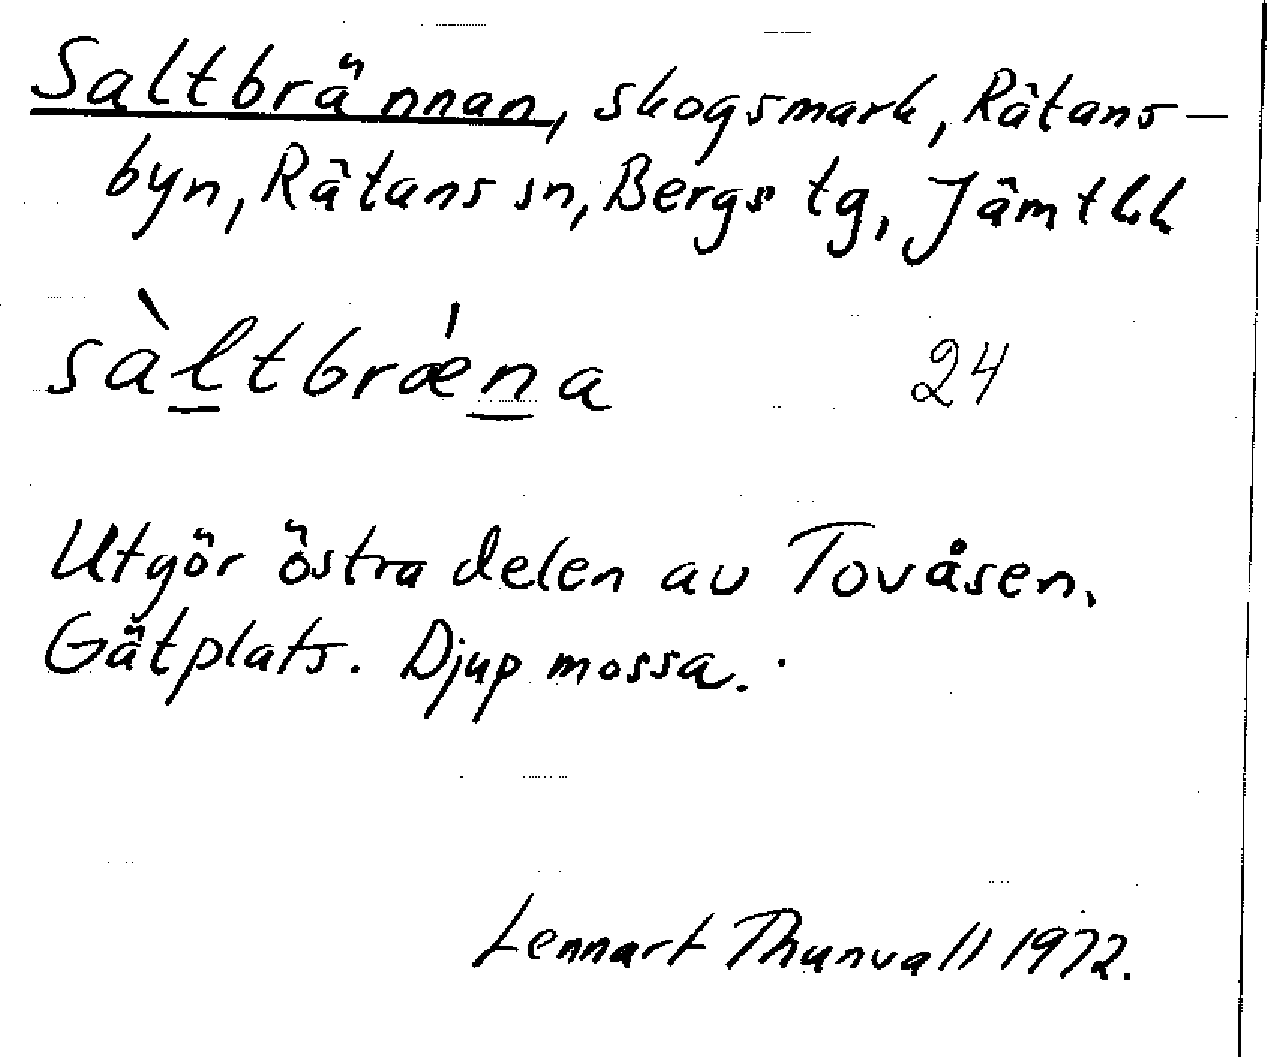 Saltbrännan, skogsmark, Rätans-
byn, Rätans sn, Bergs tg, Jämtl.
sàltbrǽna 24
Utgör östra delen av Tovåsen.
Gåtplats. Djup mossa.
Lennart Thunvall 1972.